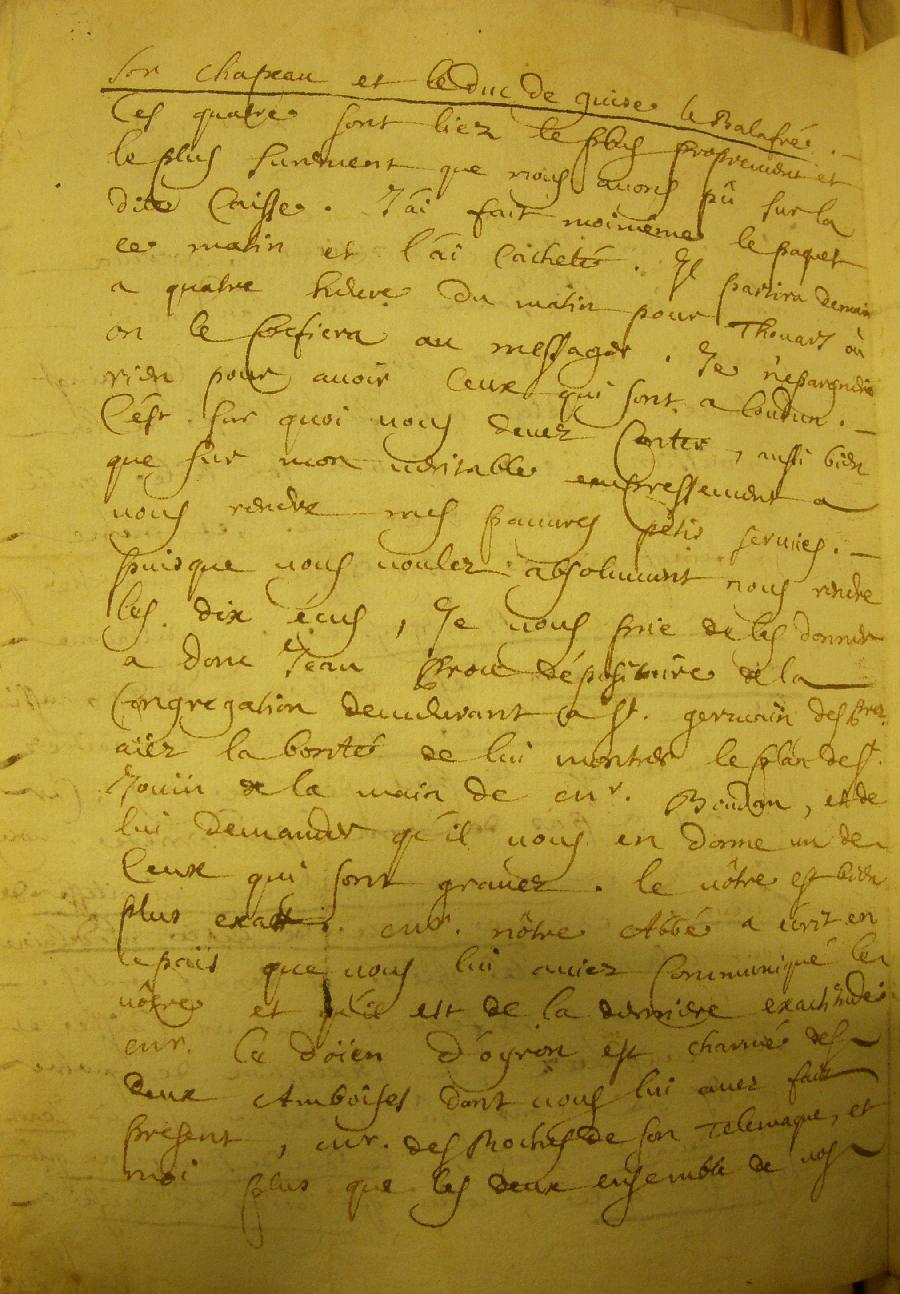 son chapeau et le duc de guise le Balafré. —
Ces quatre sont liez le plus proprement et
le plus surement que nous avons pû sur la
dite Caisse. J'ai fait moimeme le paquet
ce matin et l'ai Cacheté. Il partira demain
a quatre heure du matin pour Thouars où
on le Confiera au messager. Je n'epargnerai
rien pour avoir Ceux qui sont a loudun. —
C'est sur quoi vous devez Conter, aussi bien
que sur mon veritable empressement a
vous rendre mes pauvres petis services. —
puisque vous voulez absolument nous rendre
les dix écus, Je vous prie de les donner
a donc Jean dépositaire de la
Congregation demeurant a St. germain des Prez.
aiez la bonté de lui montrer le plan de St.
Jouin de la main de mr. Boudan, et de
lui demander qu'il vous en donne un de
Ceux qui sont gravez. le vôtre est bien
plus exact. mr. nôtre Abbé a écrit en
ce païs que vous lui aviez Communiqué le
vôtre et qu'il est de la derniere exactitude
mr. le Doïen d'oyron est charmé des
deux Amboises dont vous lui avez fait
present, mr. des Roches de son Telemaque, et
moi plus que les deux ensemble de vos